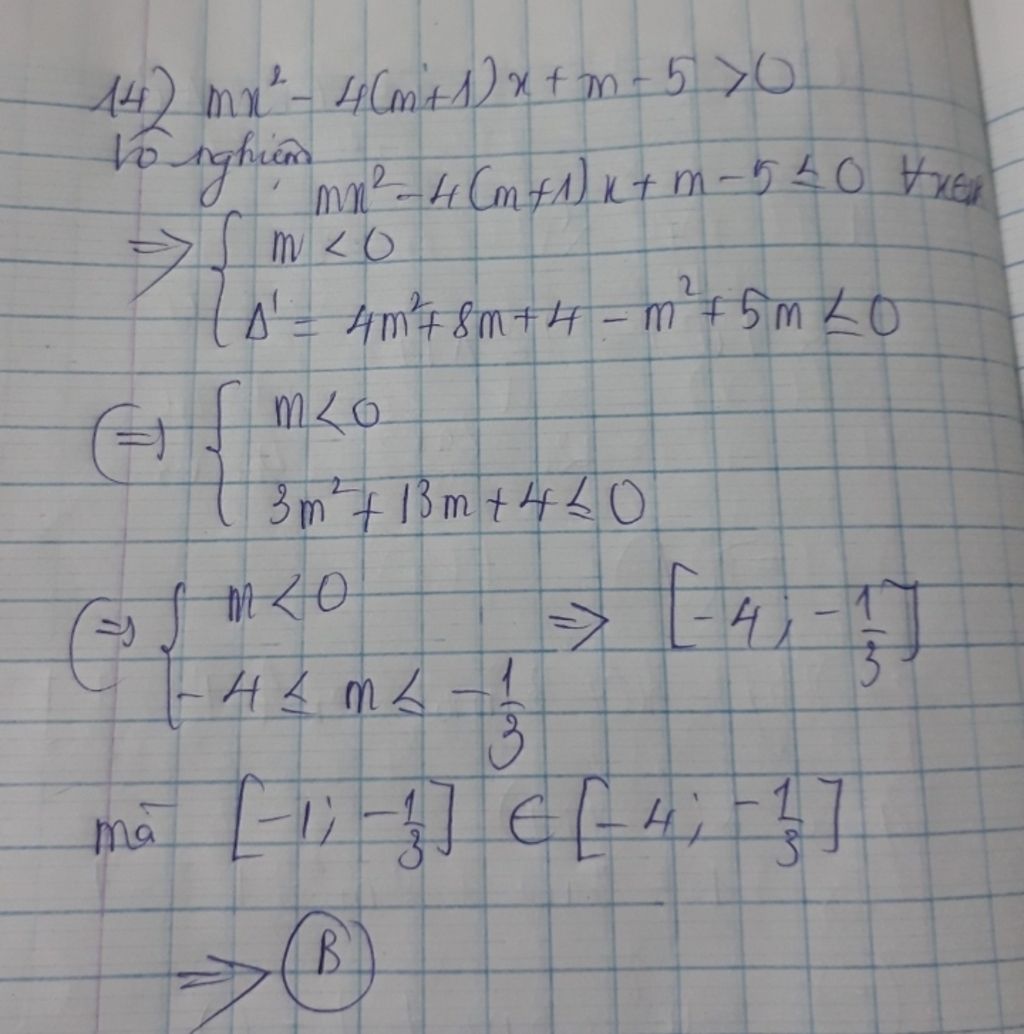 14) mx² - 4(m+1)x + m - 5 > 0
Vô nghiệm
mx² - 4(m+1)x + m - 5 ≤ 0 ∀x∈R
=> { m < 0
Δ' = 4m² + 8m + 4 - m² + 5m ≤ 0
(=) { m < 0
3m² + 13m + 4 ≤ 0
(=) { m < 0 => [-4; -1/3]
-4 ≤ m ≤ -1/3
mà [-1; -1/3] ∈ [-4; -1/3]
=> B